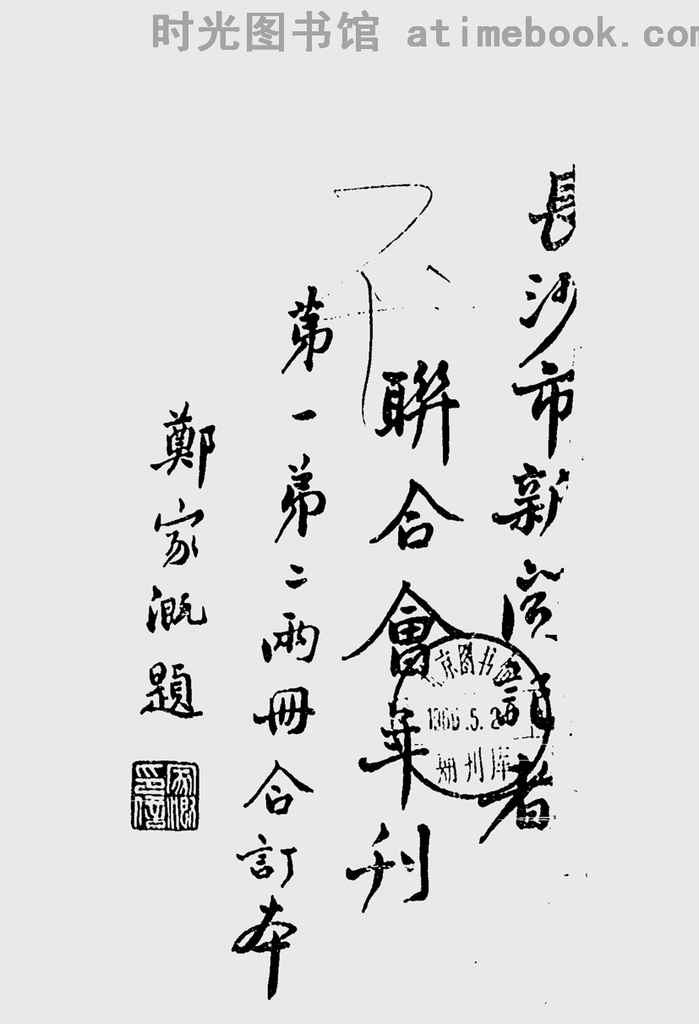 时光图书馆 atimebook.com
長沙市新聞記者
聯合會年刊
第一第二兩冊合訂本
鄭家溉題
京图书馆
.5.2
期刊库